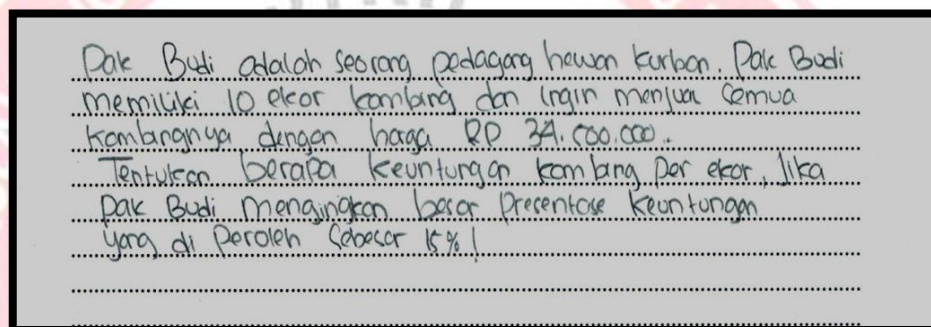 Pak Budi adalah seorang pedagang hewan kurban. Pak Budi
memiliki 10 ekor kambing dan ingin menjual semua
kambingnya dengan harga RP 34.500.000.
Tentukan berapa keuntungan kambing per ekor, Jika
pak Budi menginginkan besar Presentase keuntungan
yang di Peroleh Sebesar 15%!